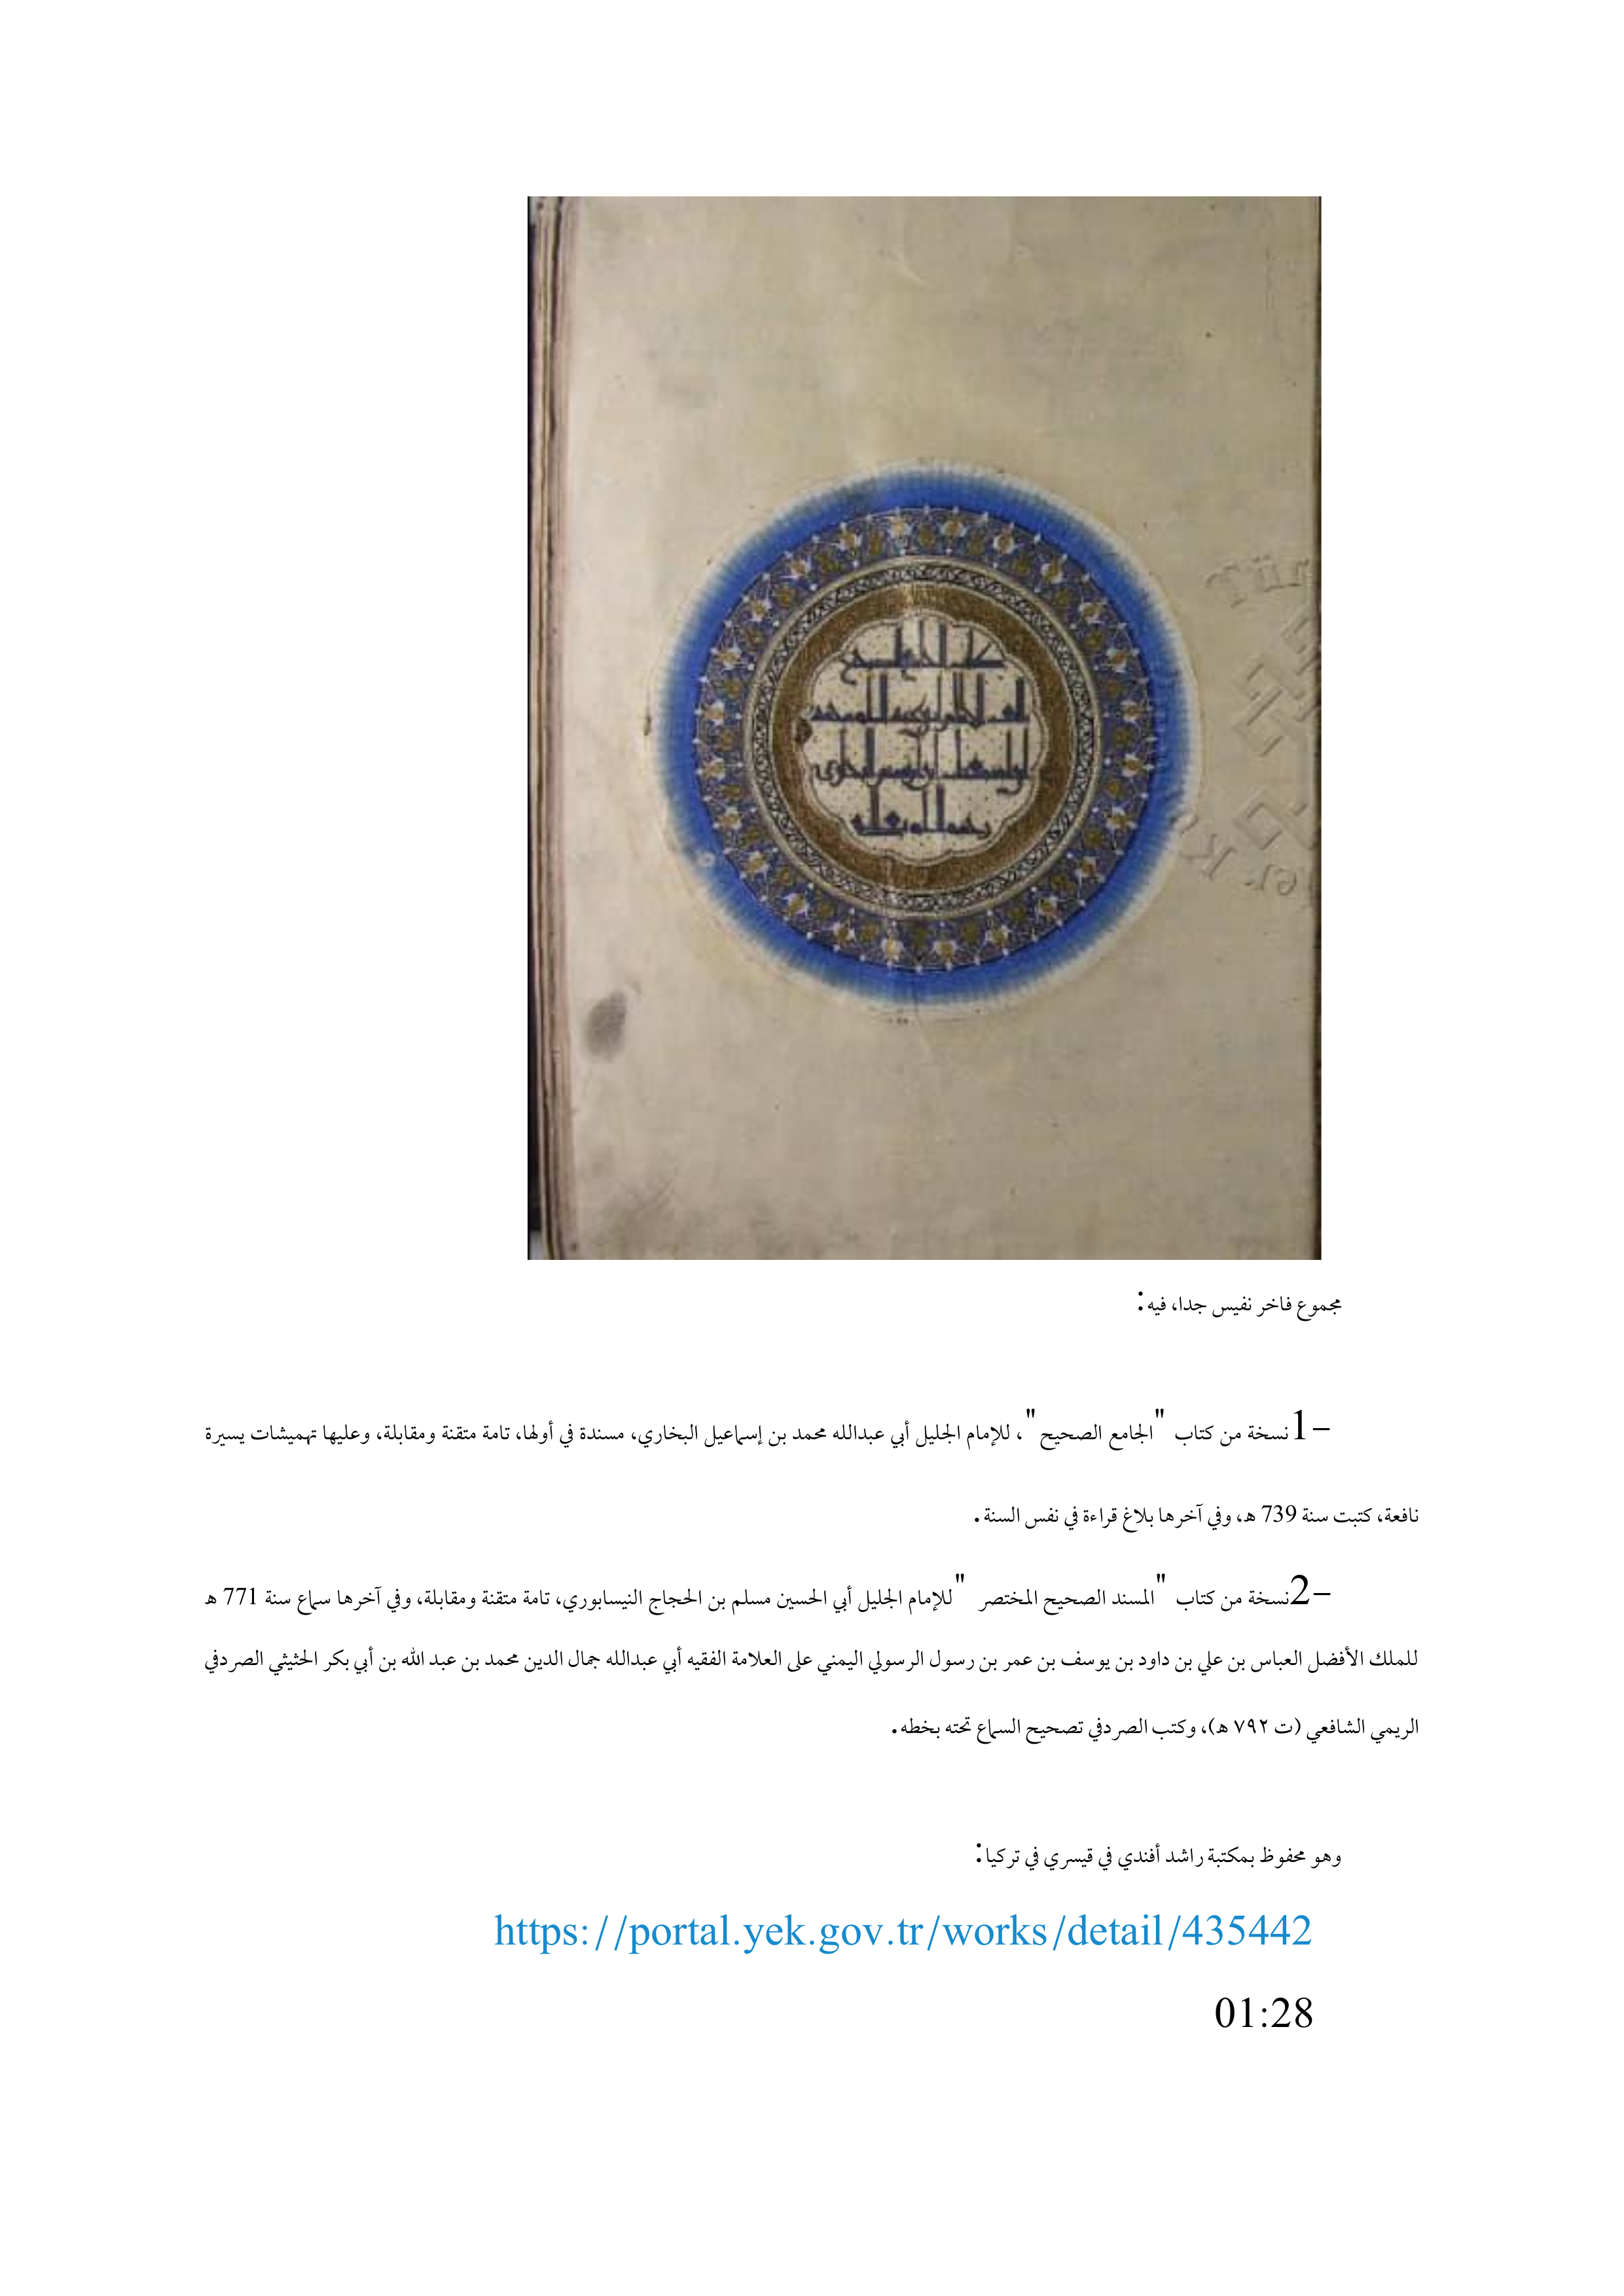 كتاب الجامع الصحيح
تأليف الإمام أبي عبد الله محمد
ابن إسمعيل بن إبرهيم البخاري
رحمه الله تعالى
مجموع فاخر نفيس جدا، فيه:
1- نسخة من كتاب "الجامع الصحيح"، للإمام الجليل أبي عبدالله محمد بن إسماعيل البخاري، مسندة في أولها، تامة متقنة ومقابلة، وعليها تهميشات يسيرة
نافعة، كتبت سنة 739 هـ، وفي آخرها بلاغ قراءة في نفس السنة.
2- نسخة من كتاب "المسند الصحيح المختصر" للإمام الجليل أبي الحسين مسلم بن الحجاج النيسابوري، تامة متقنة ومقابلة، وفي آخرها سماع سنة 771 هـ
للملك الأفضل العباس بن علي بن داود بن يوسف بن عمر بن رسول الرسولي اليمني على العلامة الفقيه أبي عبدالله جمال الدين محمد بن عبد الله بن أبي بكر الحثيثي الصردفي
الريمي الشافعي (ت ٧٩٢ هـ)، وكتب الصردفي تصحيح السماع تحته بخطه.
وهو محفوظ بمكتبة راشد أفندي في قيسري في تركيا:
https://portal.yek.gov.tr/works/detail/435442
01:28